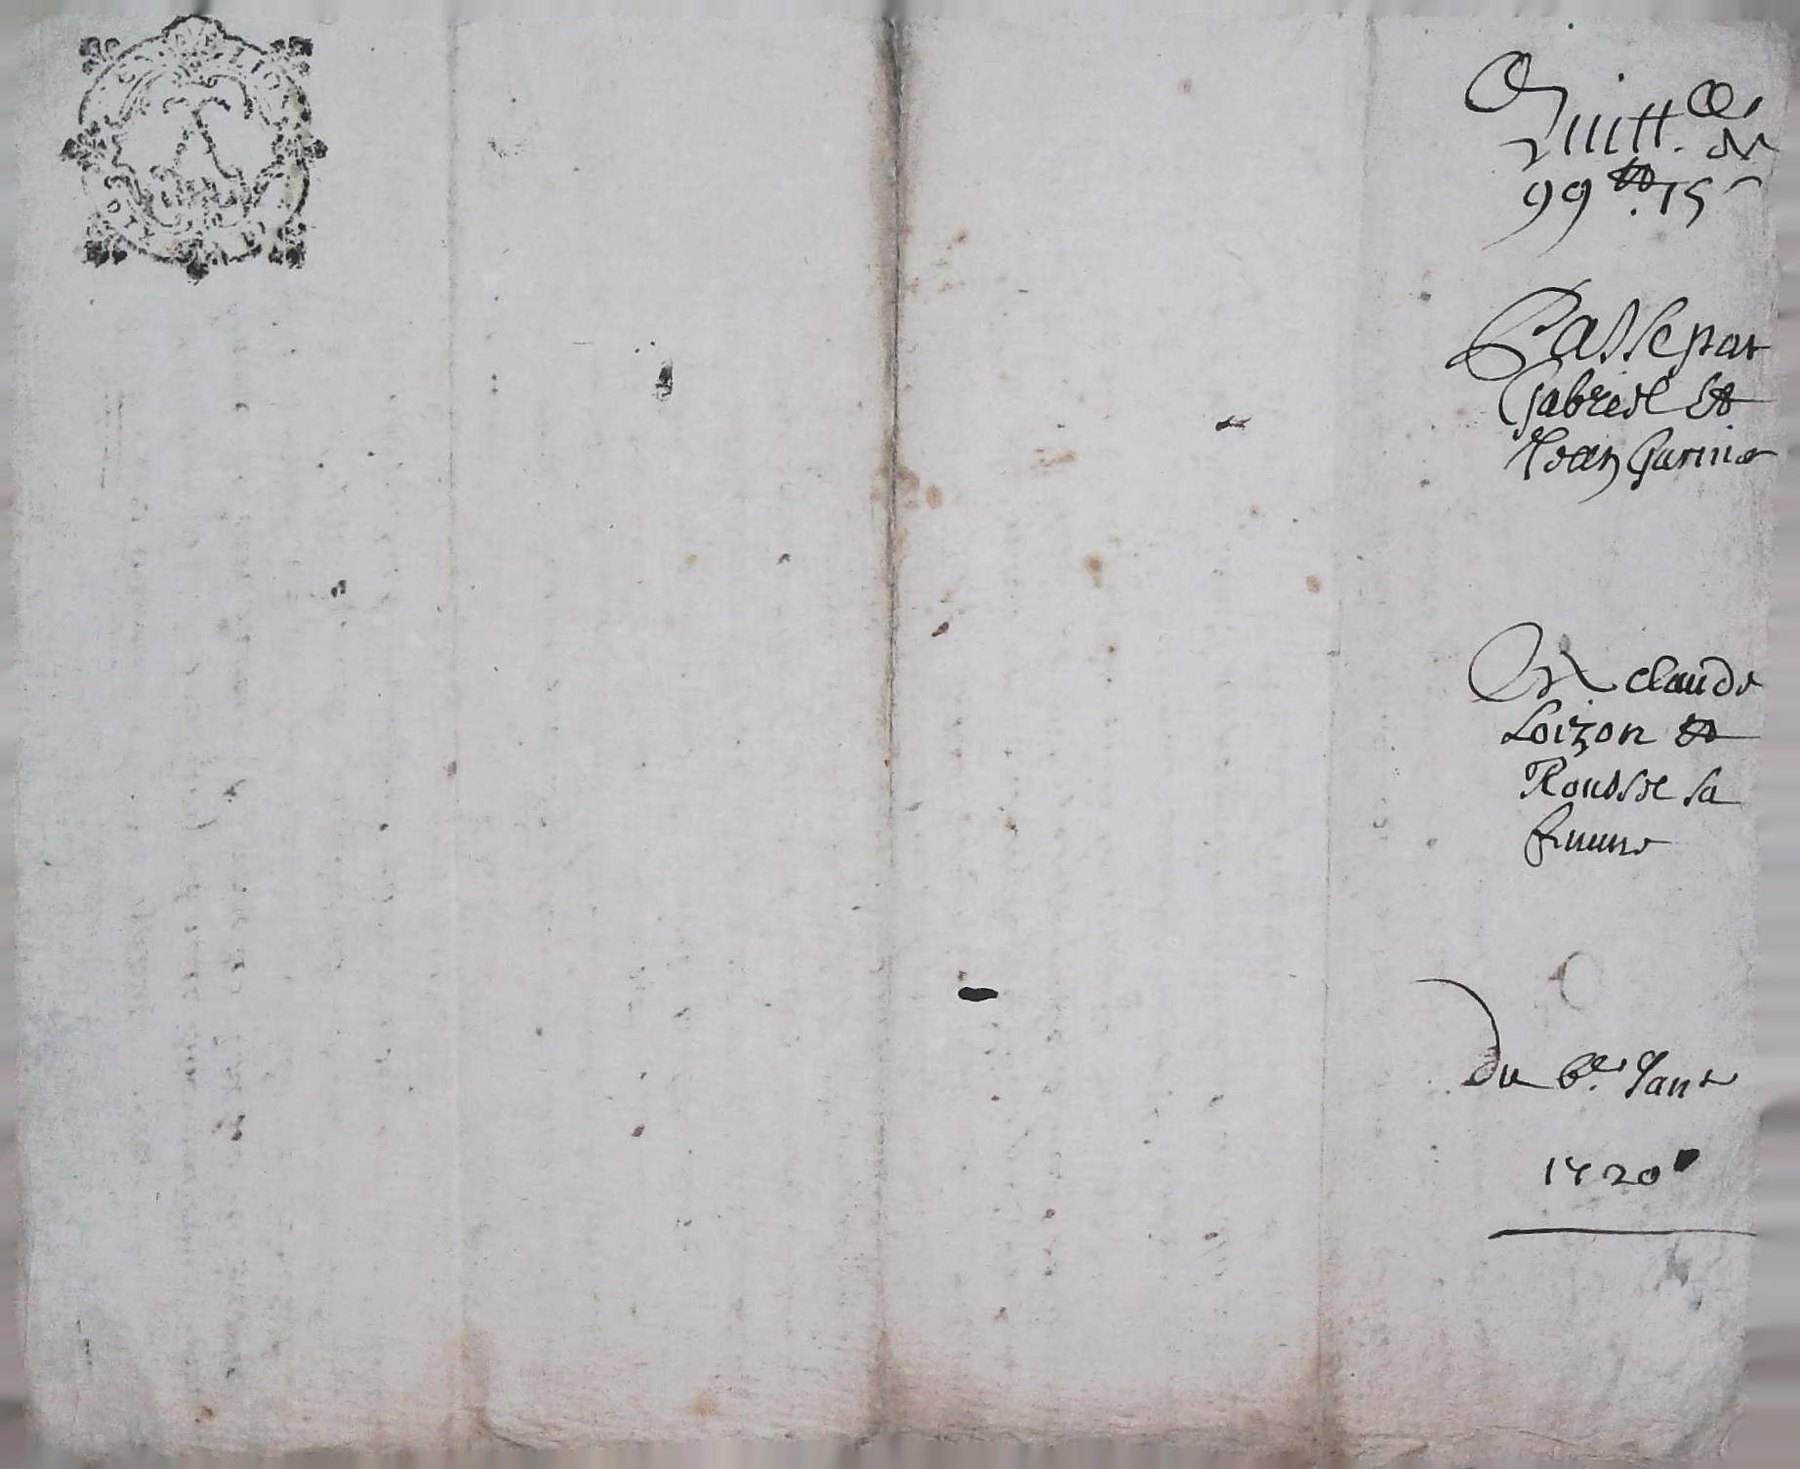 Quitt.ce de
99tt. 15s
Passe par
Gabriel et
Jean Garnier
A Claude
Loizon et
Rousse sa
femme
Du 6e. Janr
1720